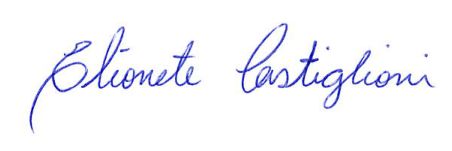 Elionete Castiglioni